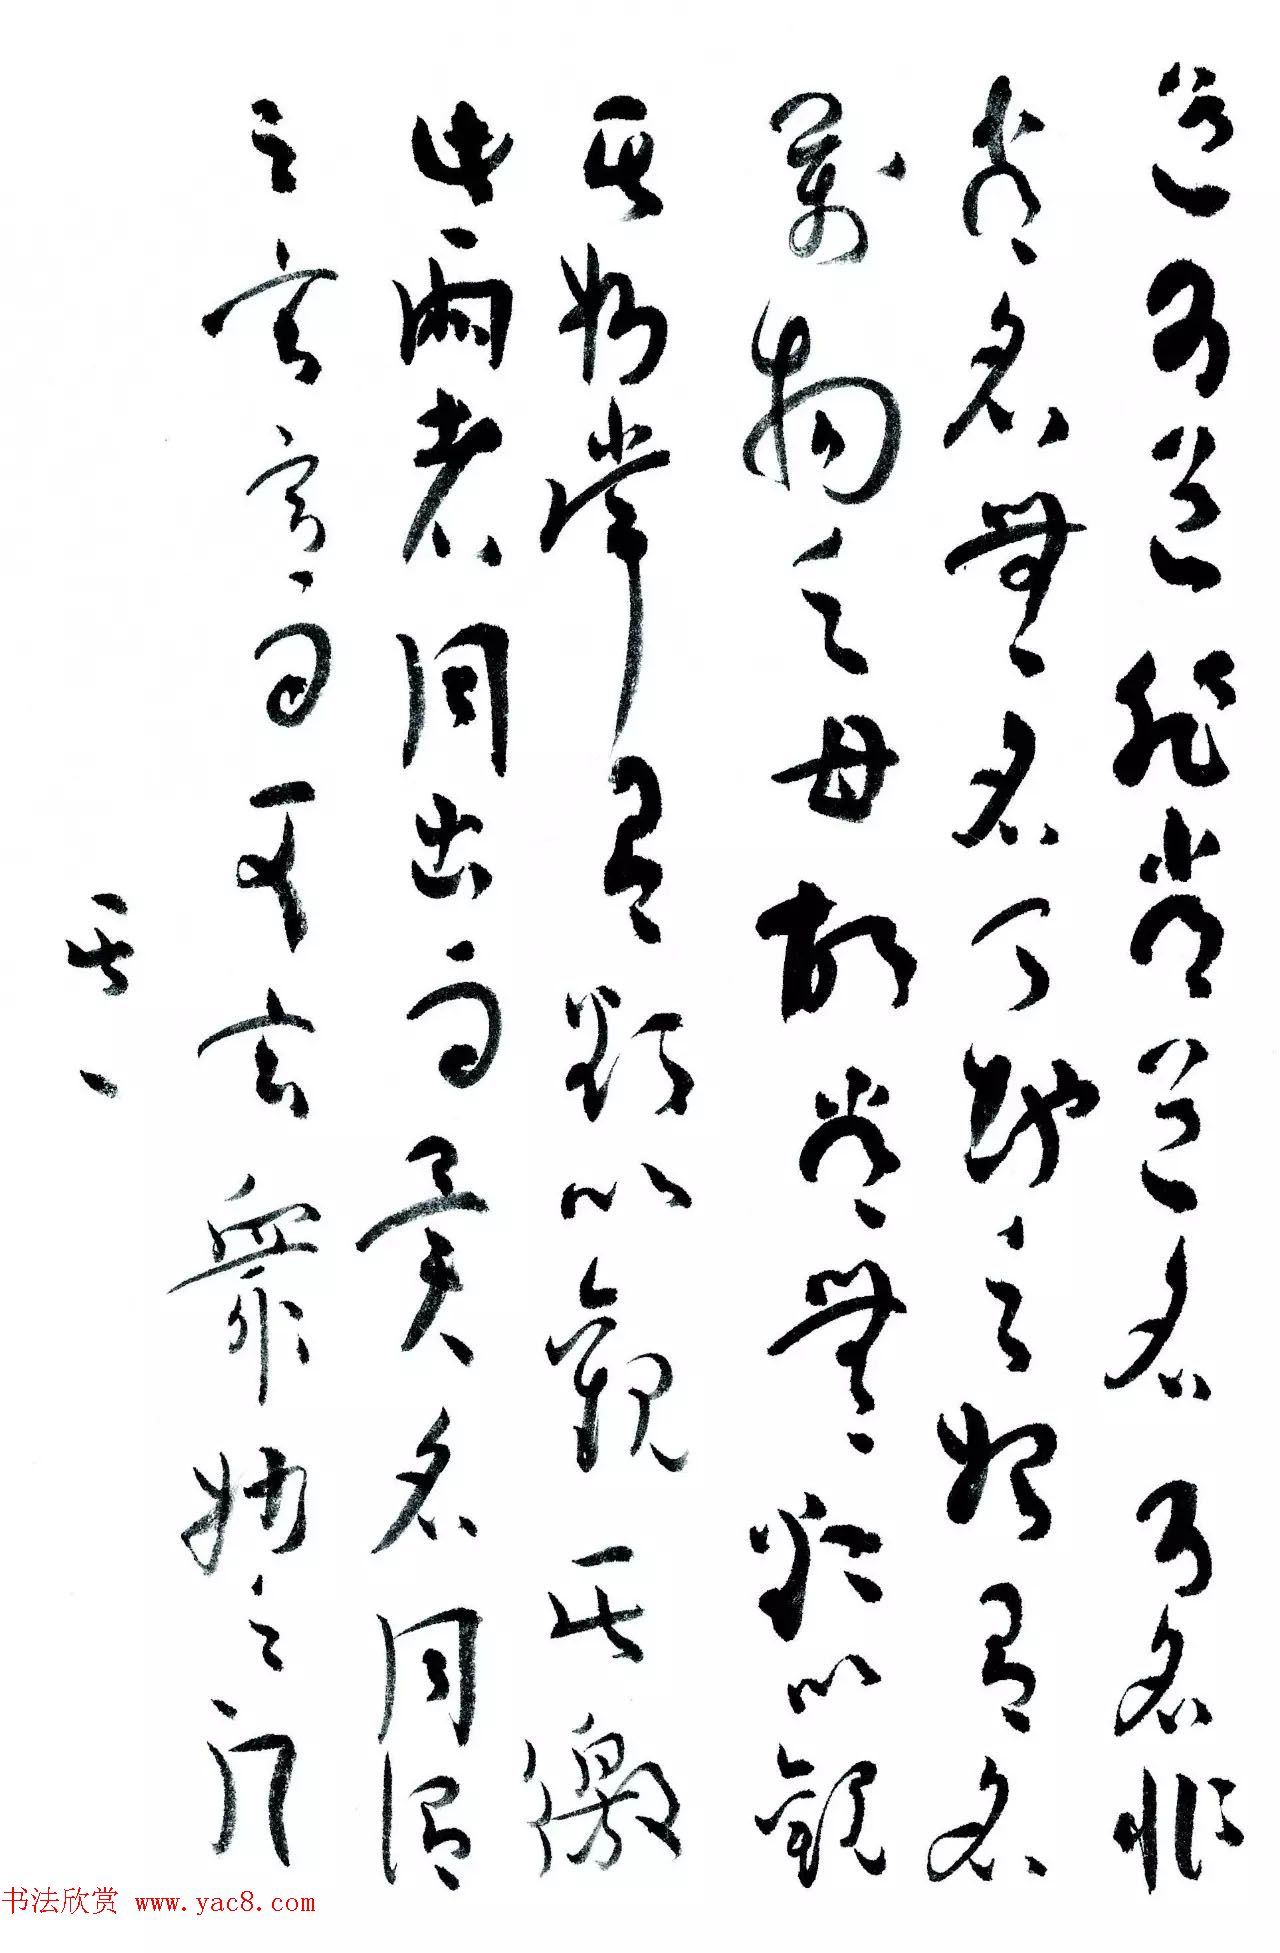 道可道非常道名可名非
常名無名天地之始有名
萬物之母故常無欲以觀
其妙常有欲以觀其徼
此兩者同出而異名同謂
之玄玄而玄衆妙之門
其一
书法欣赏 www.yac8.com